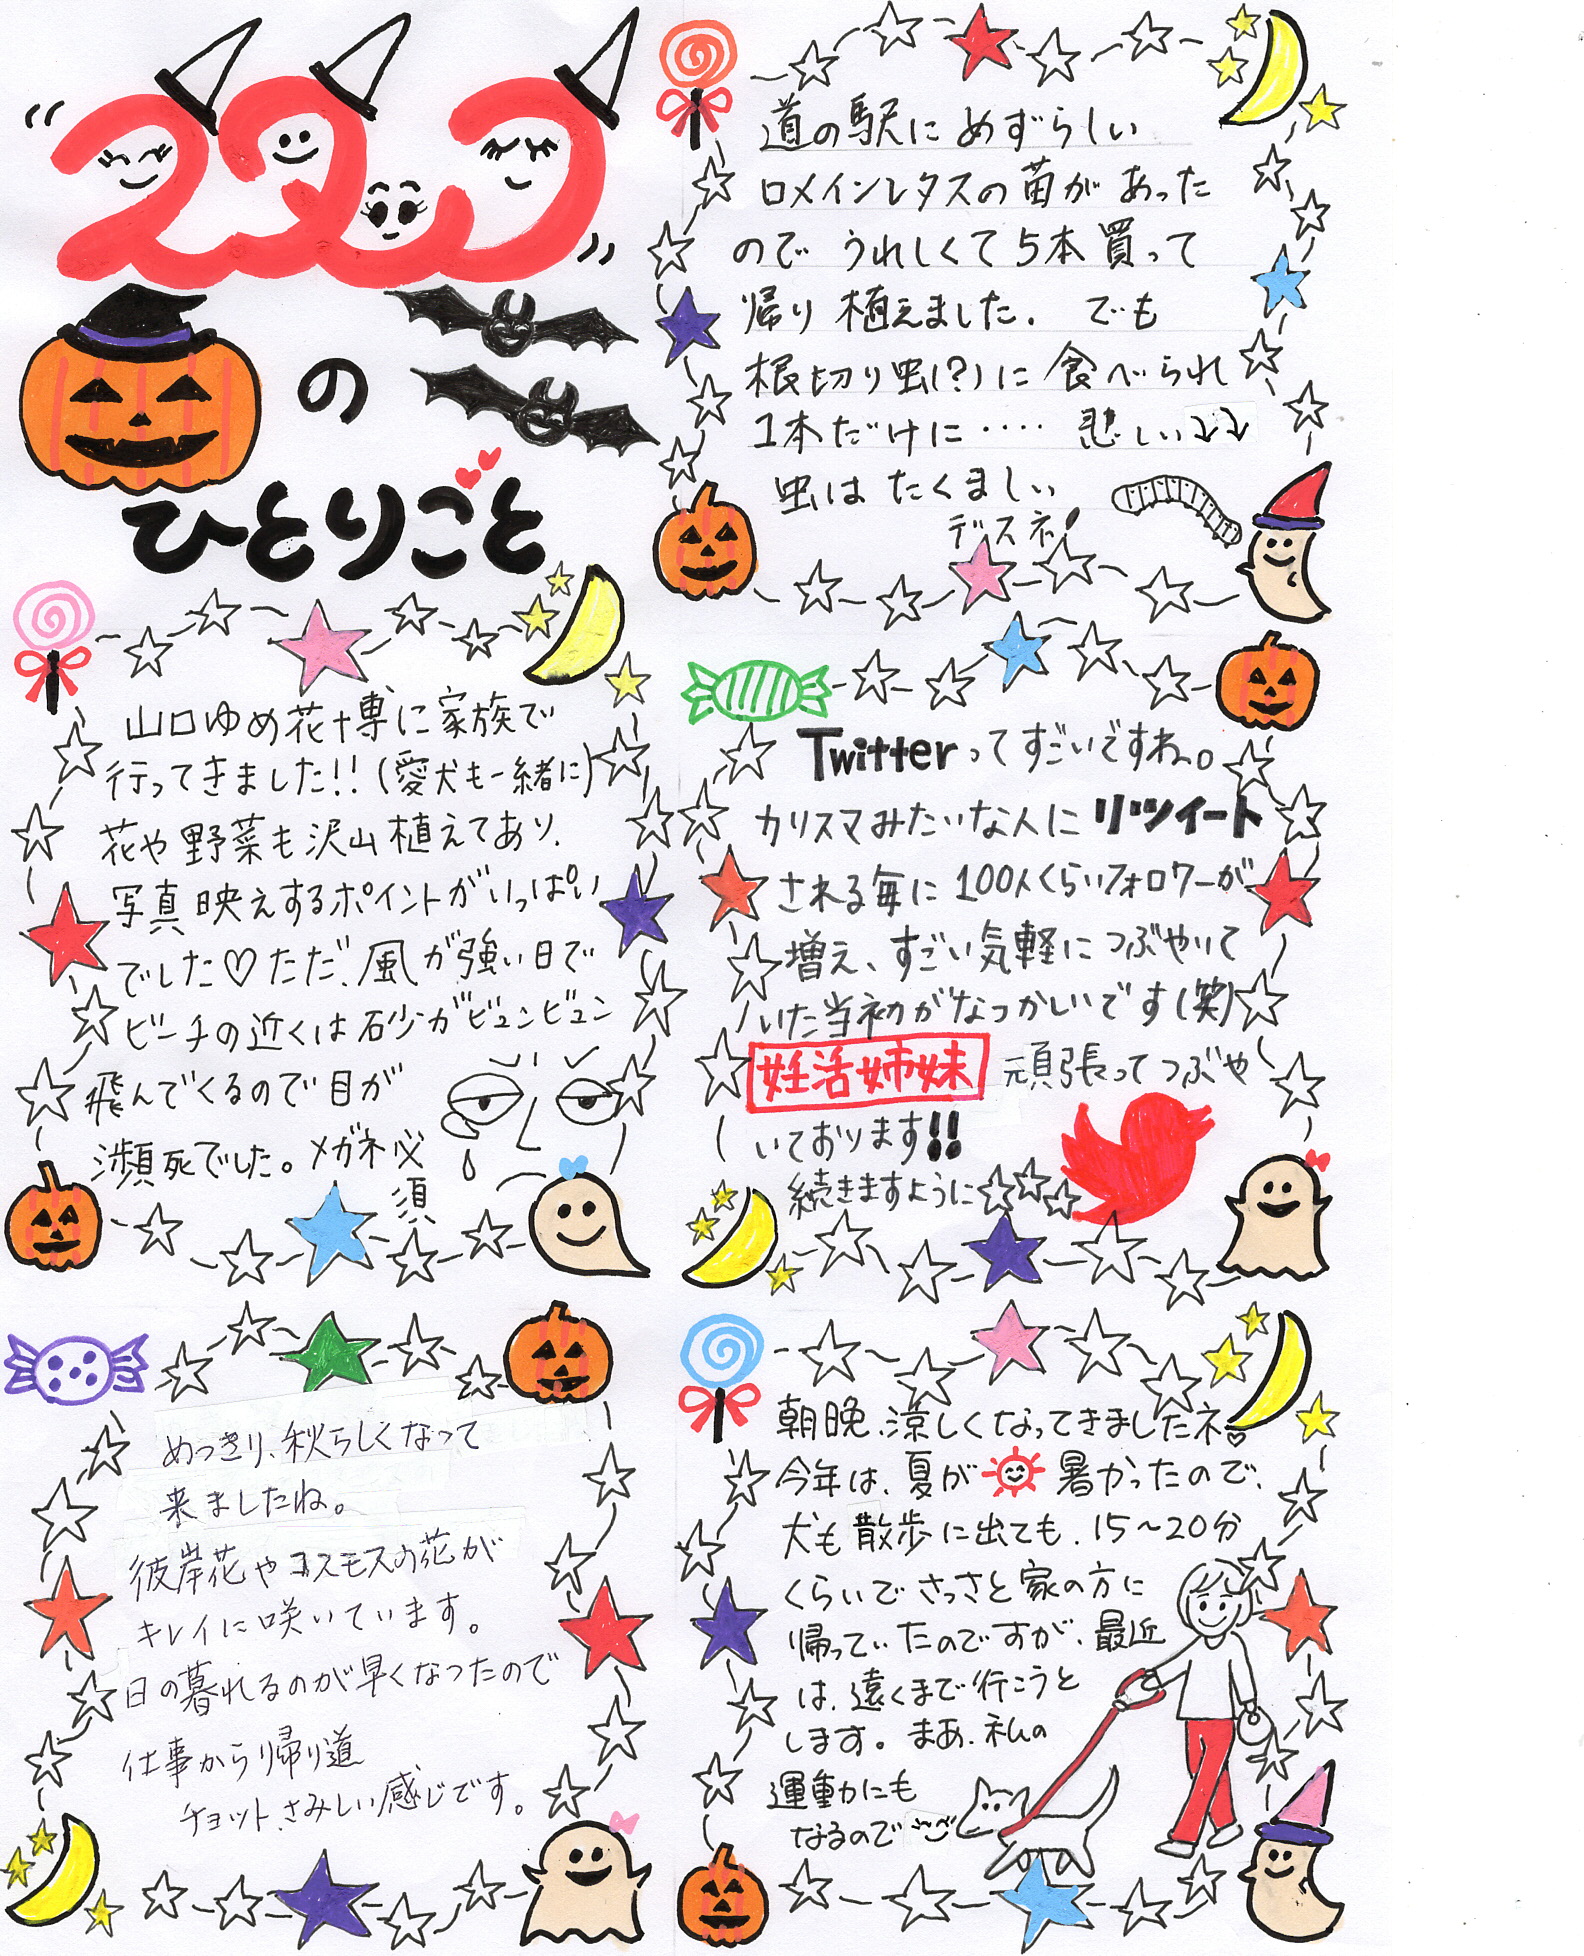 スタッフ
の
ひとりごと
山口ゆめ花博に家族で
行ってきました!!(愛犬も一緒に)
花や野菜も沢山植えてあり、
写真映えするポイントがいっぱい
でした♡ただ、風が強い日で
ビーチの近くは石少がビュンビュン
飛んでくるので目が
瀕死でした。メガネ必
須
めっきり、秋らしくなって
来ましたね。
彼岸花やコスモスの花が
キレイに咲いています。
日の暮れるのが早くなったので
仕事から帰り道
チョット、さみしい感じです。
道の駅にめずらしい
ロメインレタスの苗があった
のでうれしくて5本買って
帰り植えました. でも
根切り虫(?)に食べられ
1本だけに‥‥ 悲しい⤵⤵
虫はたくましい
デスネ!
Twitterってすごいですね。
カリスマみたいな人にリツイート
される毎に100人くらいフォロワーが
増え、すごい気軽につぶやいて
いた当初がなつかしいです(笑)
妊活姉妹 頑張ってつぶや
いております!!
続きますように☆☆☆
朝晩、涼しくなってきましたネ。
今年は、夏が暑かったので、
犬も散歩に出ても、15~20分
くらいでさっさと家の方に
帰っていたのですが、最近
は、遠くまで行こうと
します。まあ、私の
運動にも
なるので